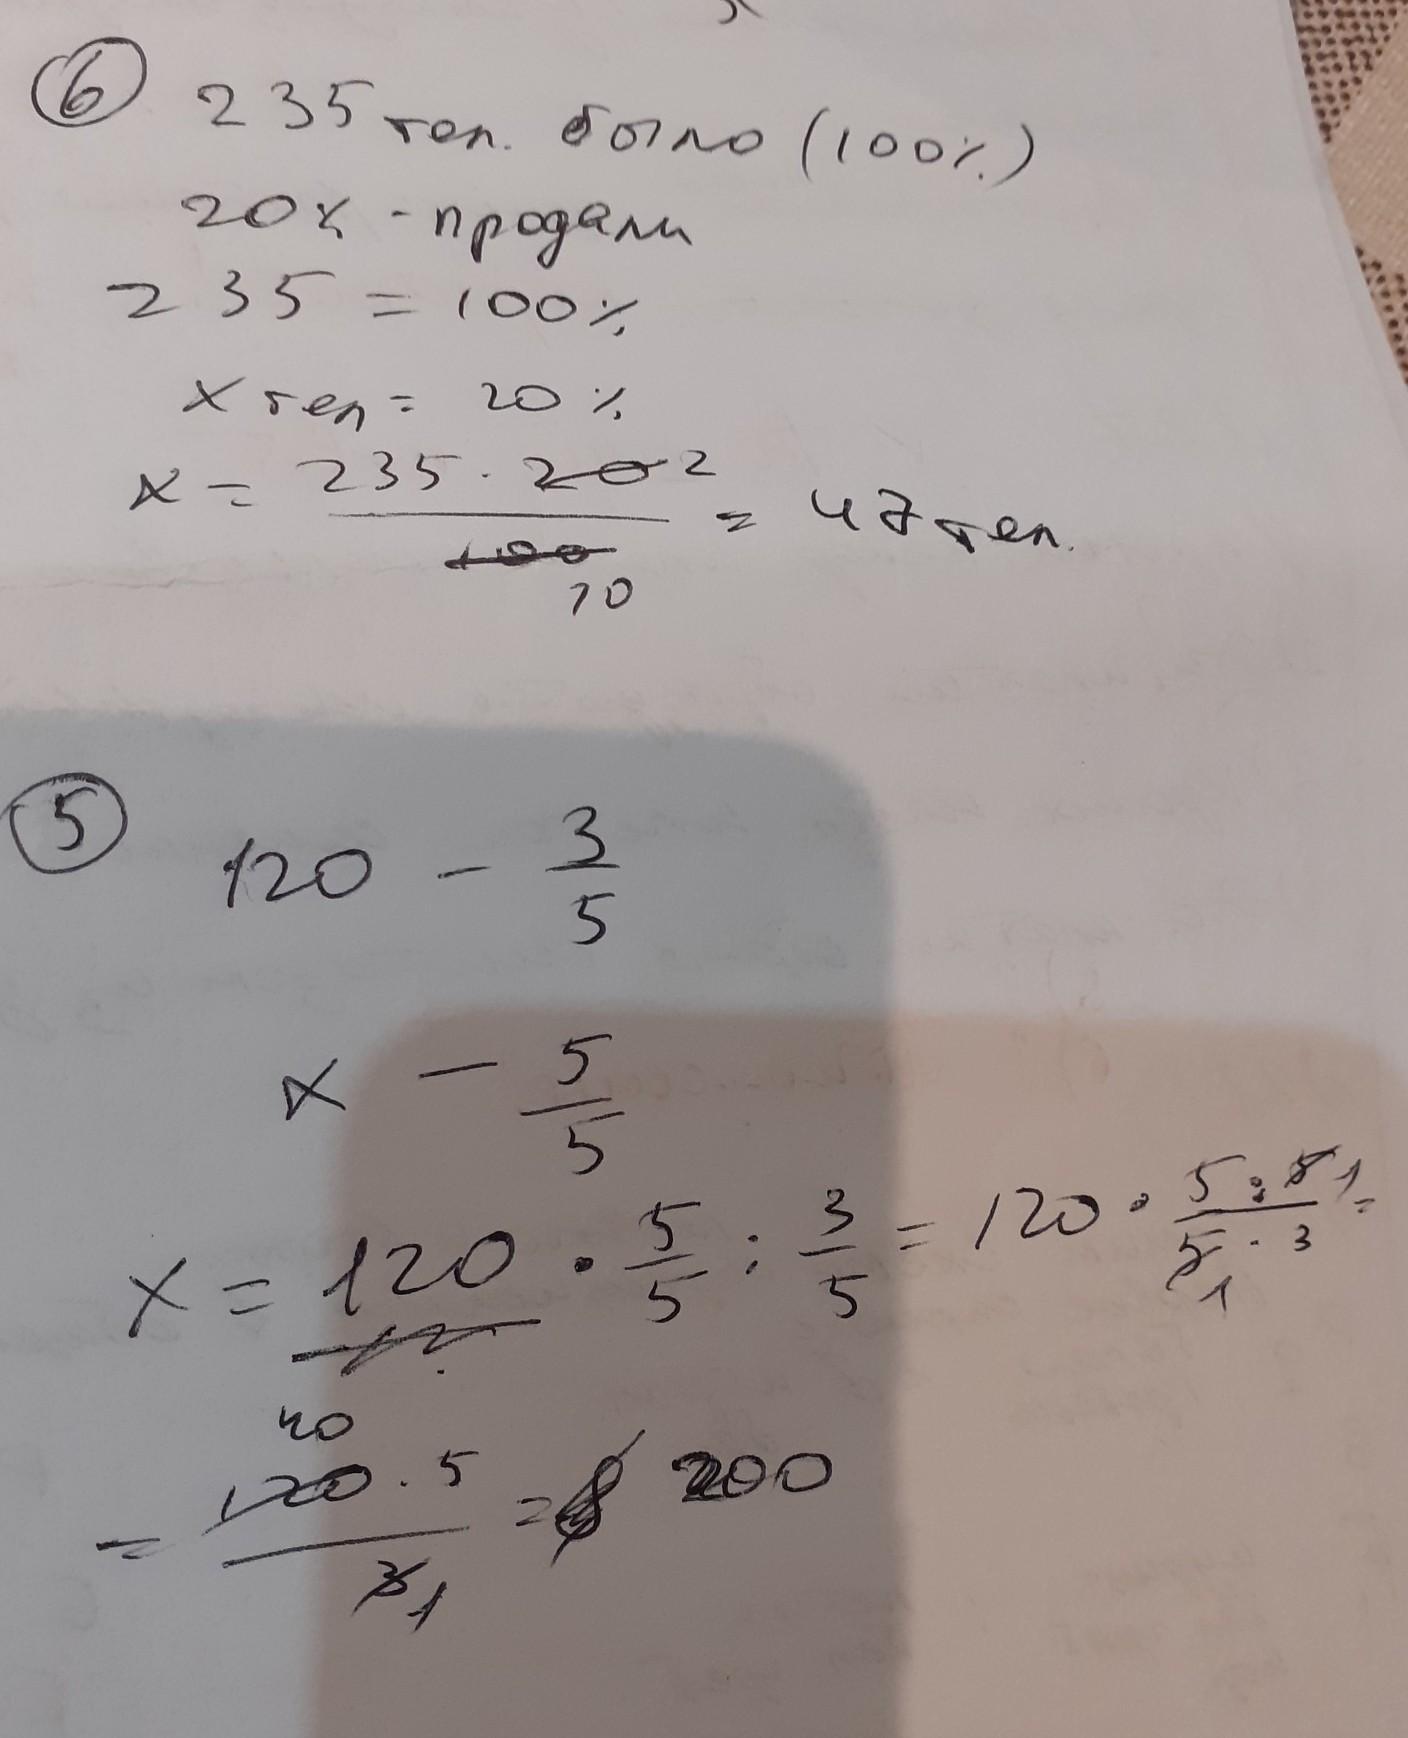 6 235 тел. было (100%)
20% - продали
235 = 100%
x тел = 20%
x = 235 · 20 2 / 100 10 = 47 тел.
5 120 - 3/5
x - 5/5
x = 120 · 5/5 : 3/5 = 120 · 5 · 5 1 / 5 1 · 3 =
= 40 120 · 5 / 3 1 = 200